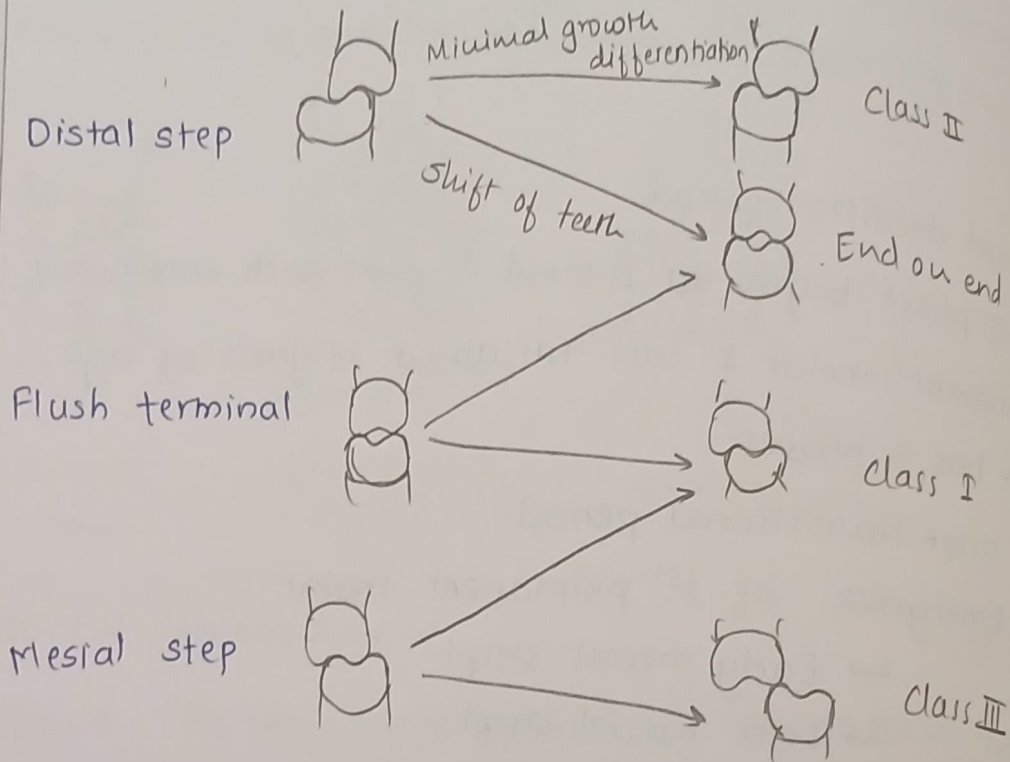 Minimal growth
differentiation
Distal step
Class II
Shift of teeth
End on end
Flush terminal
Class I
Mesial step
Class III